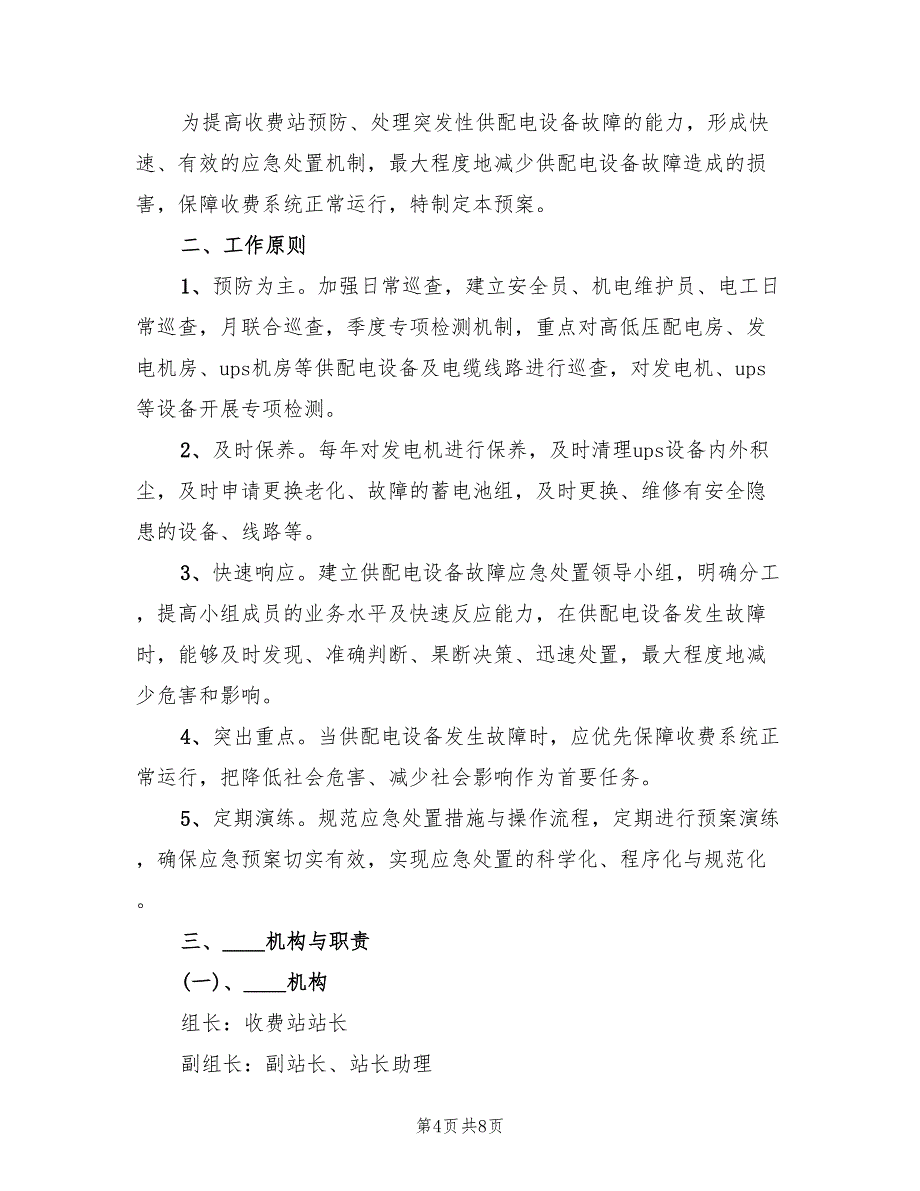 为提高收费站预防、处理突发性供配电设备故障的能力，形成快
速、有效的应急处置机制，最大程度地减少供配电设备故障造成的损
害，保障收费系统正常运行，特制定本预案。
二、工作原则
1、预防为主。加强日常巡查，建立安全员、机电维护员、电工日
常巡查，月联合巡查，季度专项检测机制，重点对高低压配电房、发
电机房、ups机房等供配电设备及电缆线路进行巡查，对发电机、ups
等设备开展专项检测。
2、及时保养。每年对发电机进行保养，及时清理ups设备内外积
尘，及时申请更换老化、故障的蓄电池组，及时更换、维修有安全隐
患的设备、线路等。
3、快速响应。建立供配电设备故障应急处置领导小组，明确分工
，提高小组成员的业务水平及快速反应能力，在供配电设备发生故障
时，能够及时发现、准确判断、果断决策、迅速处置，最大程度地减
少危害和影响。
4、突出重点。当供配电设备发生故障时，应优先保障收费系统正
常运行，把降低社会危害、减少社会影响作为首要任务。
5、定期演练。规范应急处置措施与操作流程，定期进行预案演练
，确保应急预案切实有效，实现应急处置的科学化、程序化与规范化
。
三、____机构与职责
(一)、____机构
组长：收费站站长
副组长：副站长、站长助理
第4页 共8页